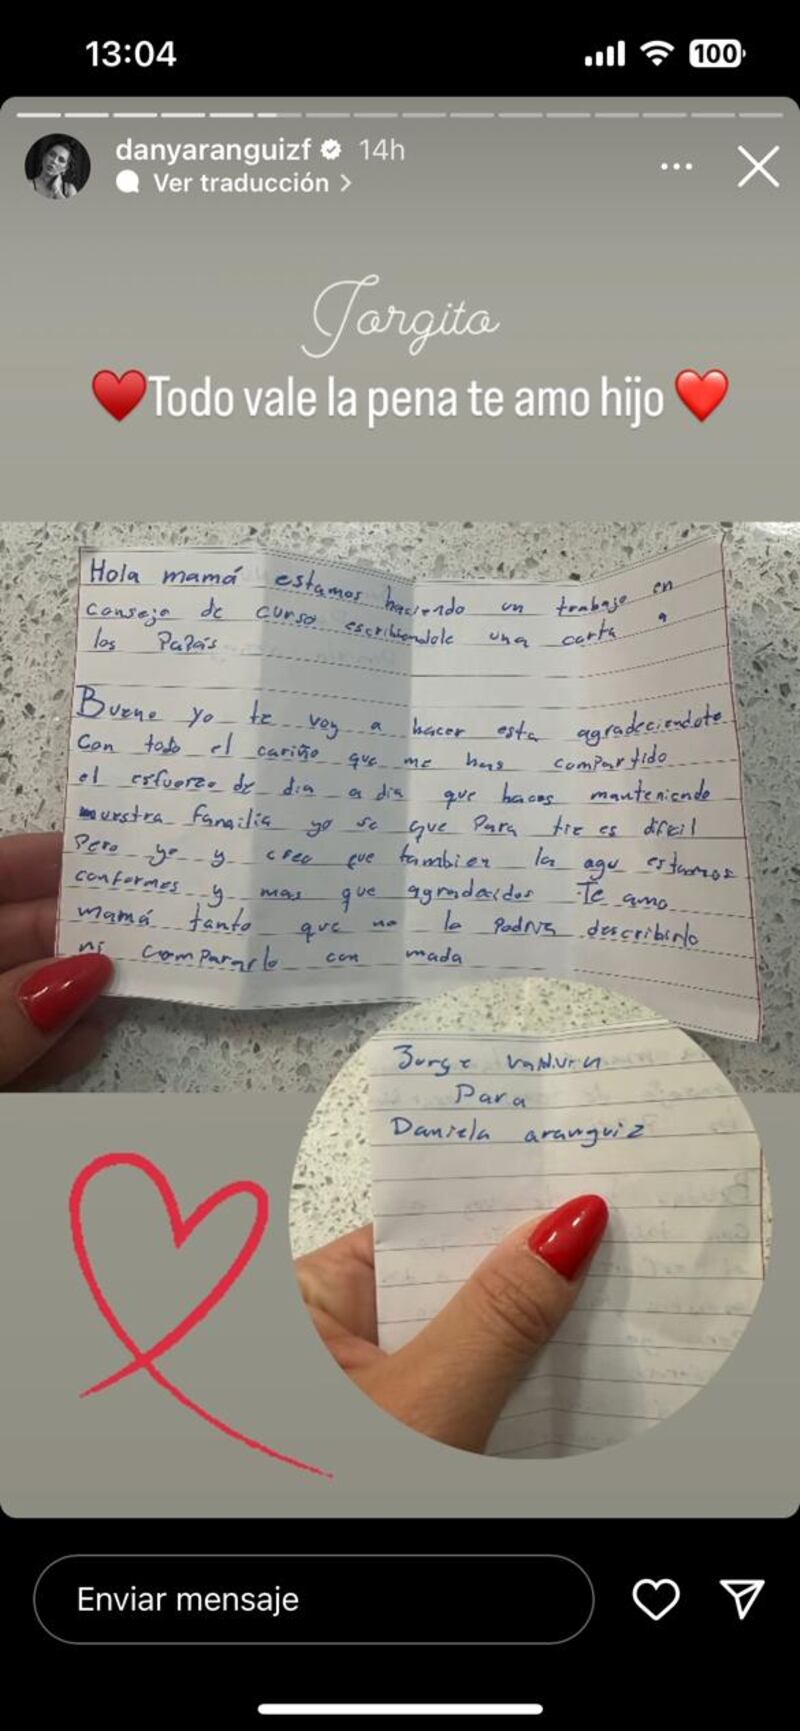 13:04
100
danyaranguizf 14h
Ver traducción >
Jorgito
Todo vale la pena te amo hijo
Hola mamá estamos haciendo un trabajo en
consejo de curso escribiendole una carta a
los Papás
Bueno yo te voy a hacer esta agradeciendote
Con todo el cariño que me has compartido
el esfuerzo de dia a dia que haces manteniendo
nuestra familia yo se que Para tie es dificil
Pero yo y creo que tambien la agu estamos
conformes y mas que agradecidos Te amo
mamá tanto que no lo Podria describirlo
ni compararlo con nada
Jorge
Para
Daniela aranguiz
Enviar mensaje